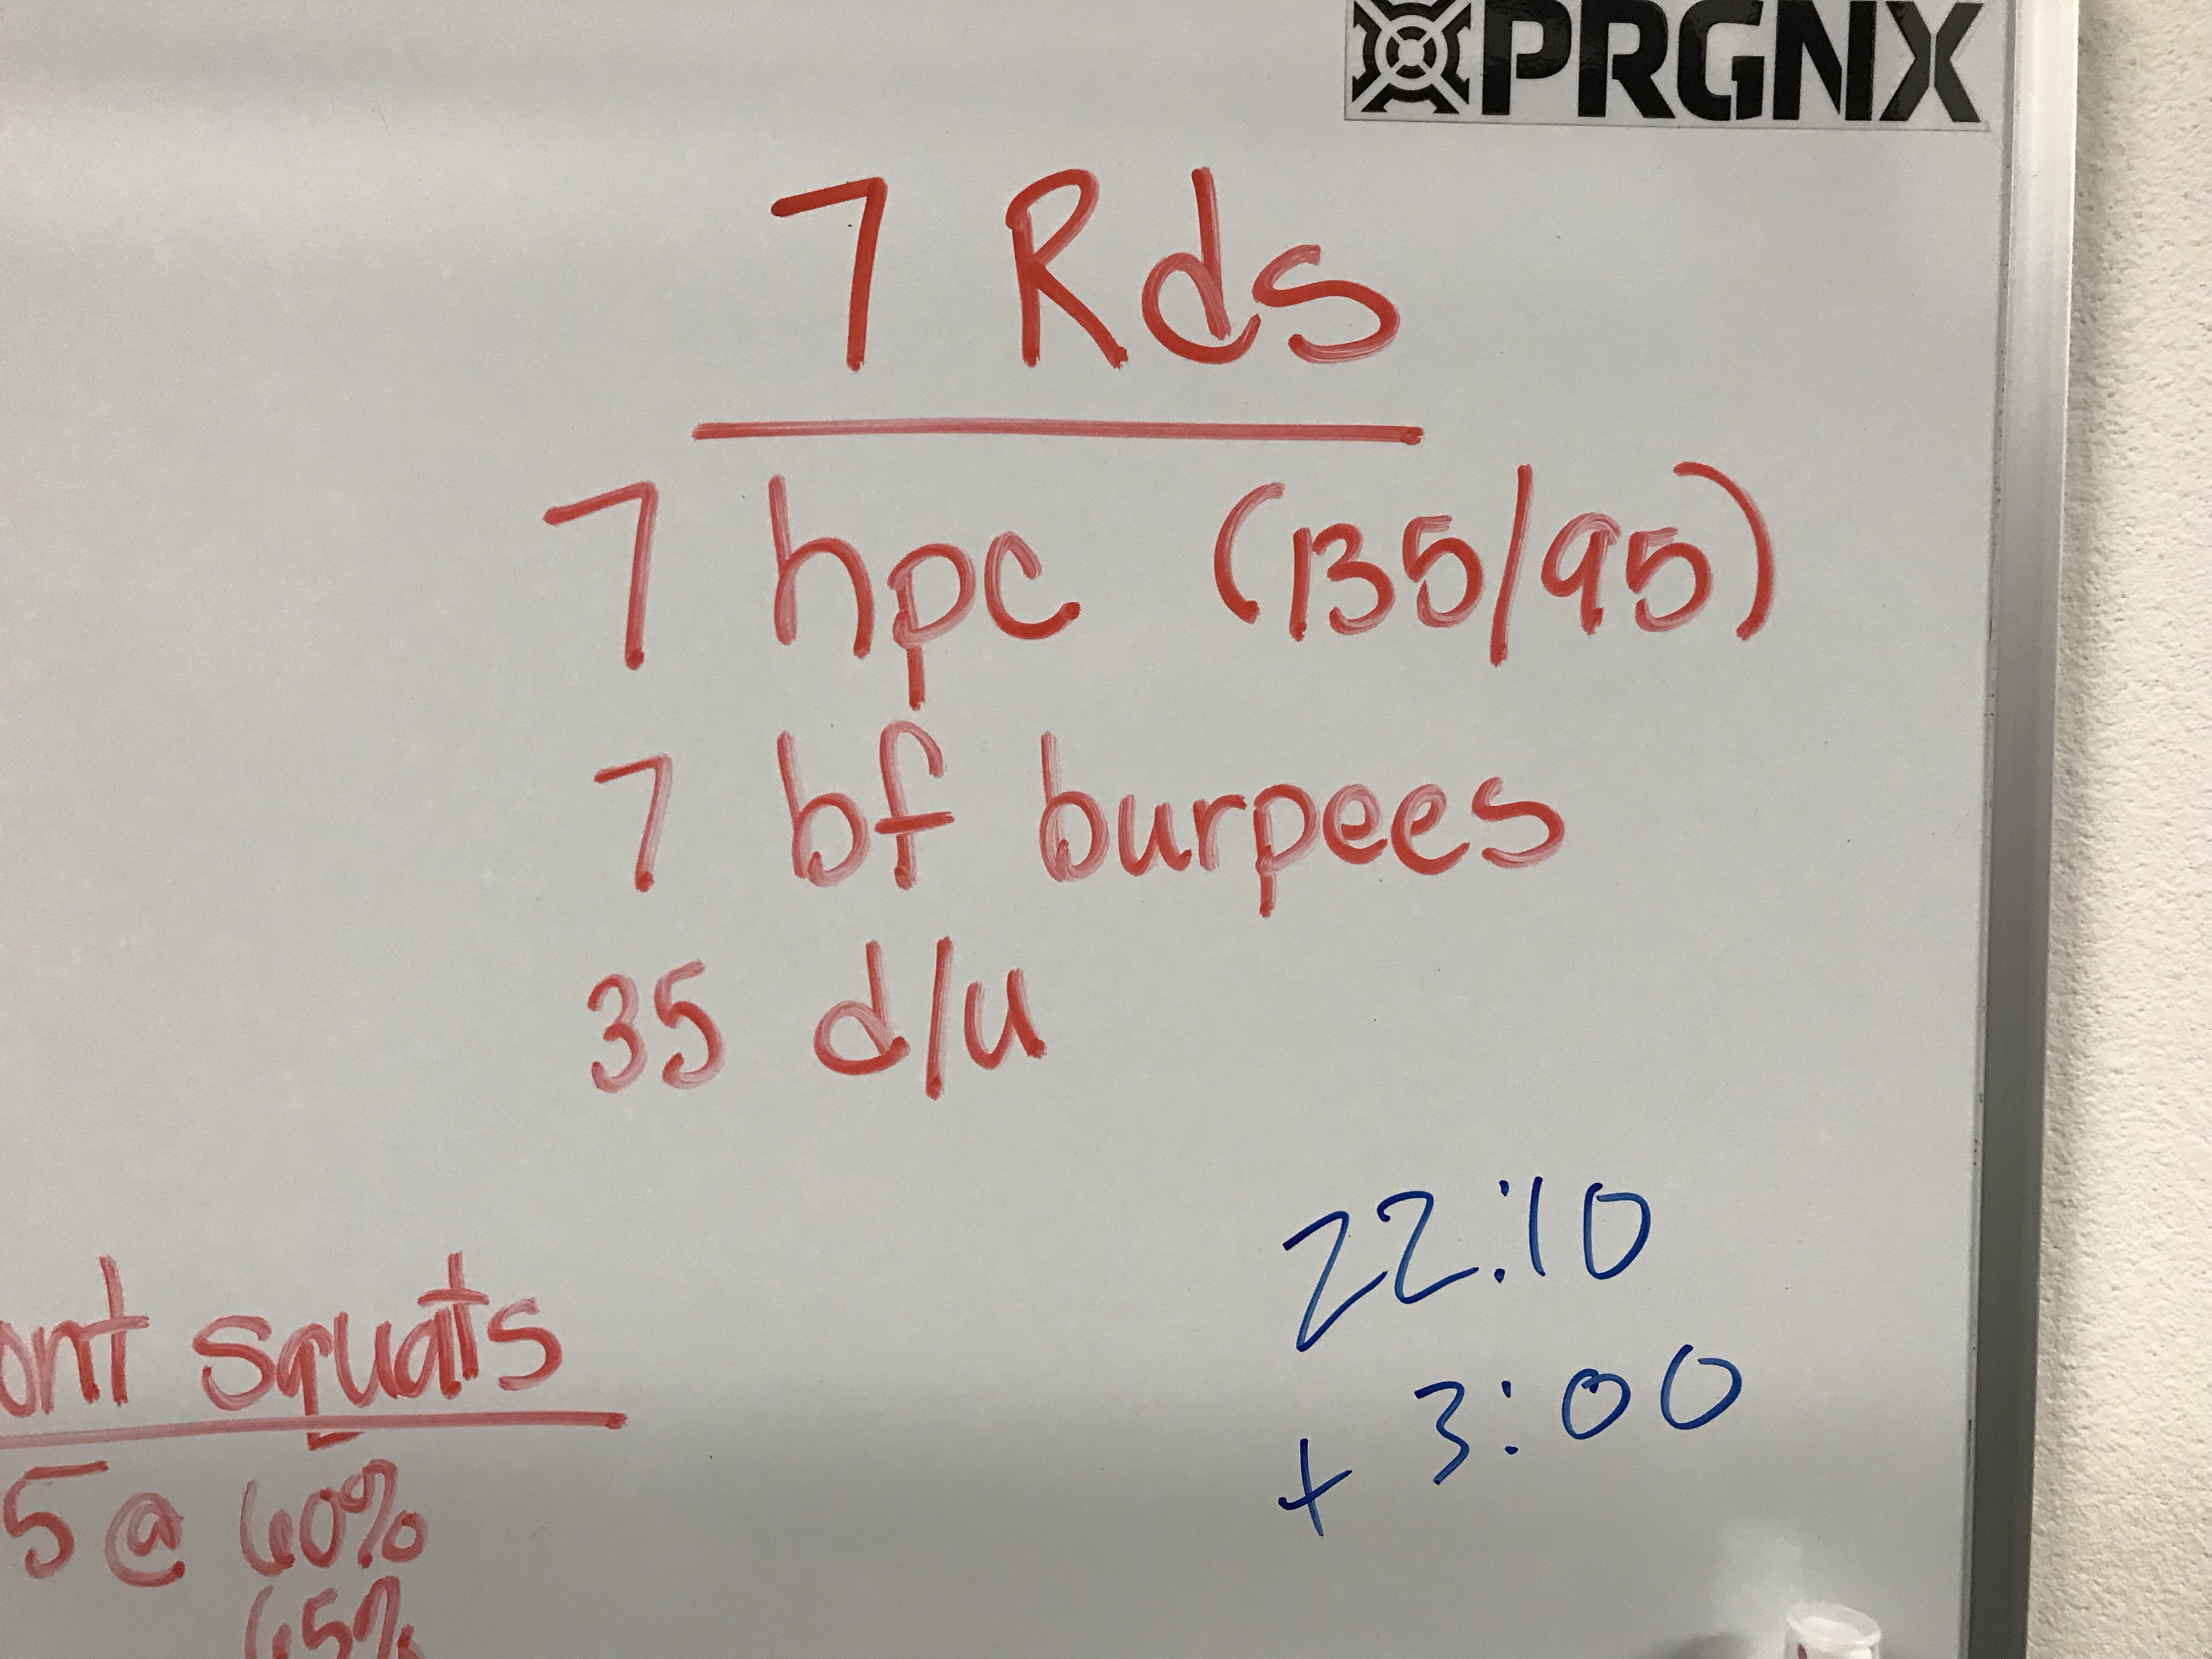 PRGNX
7 Rds
7 hpc (135/95)
7 bf burpees
35 d/u
22:10
+ 3:00
ont squats
5 @ 60%
65%